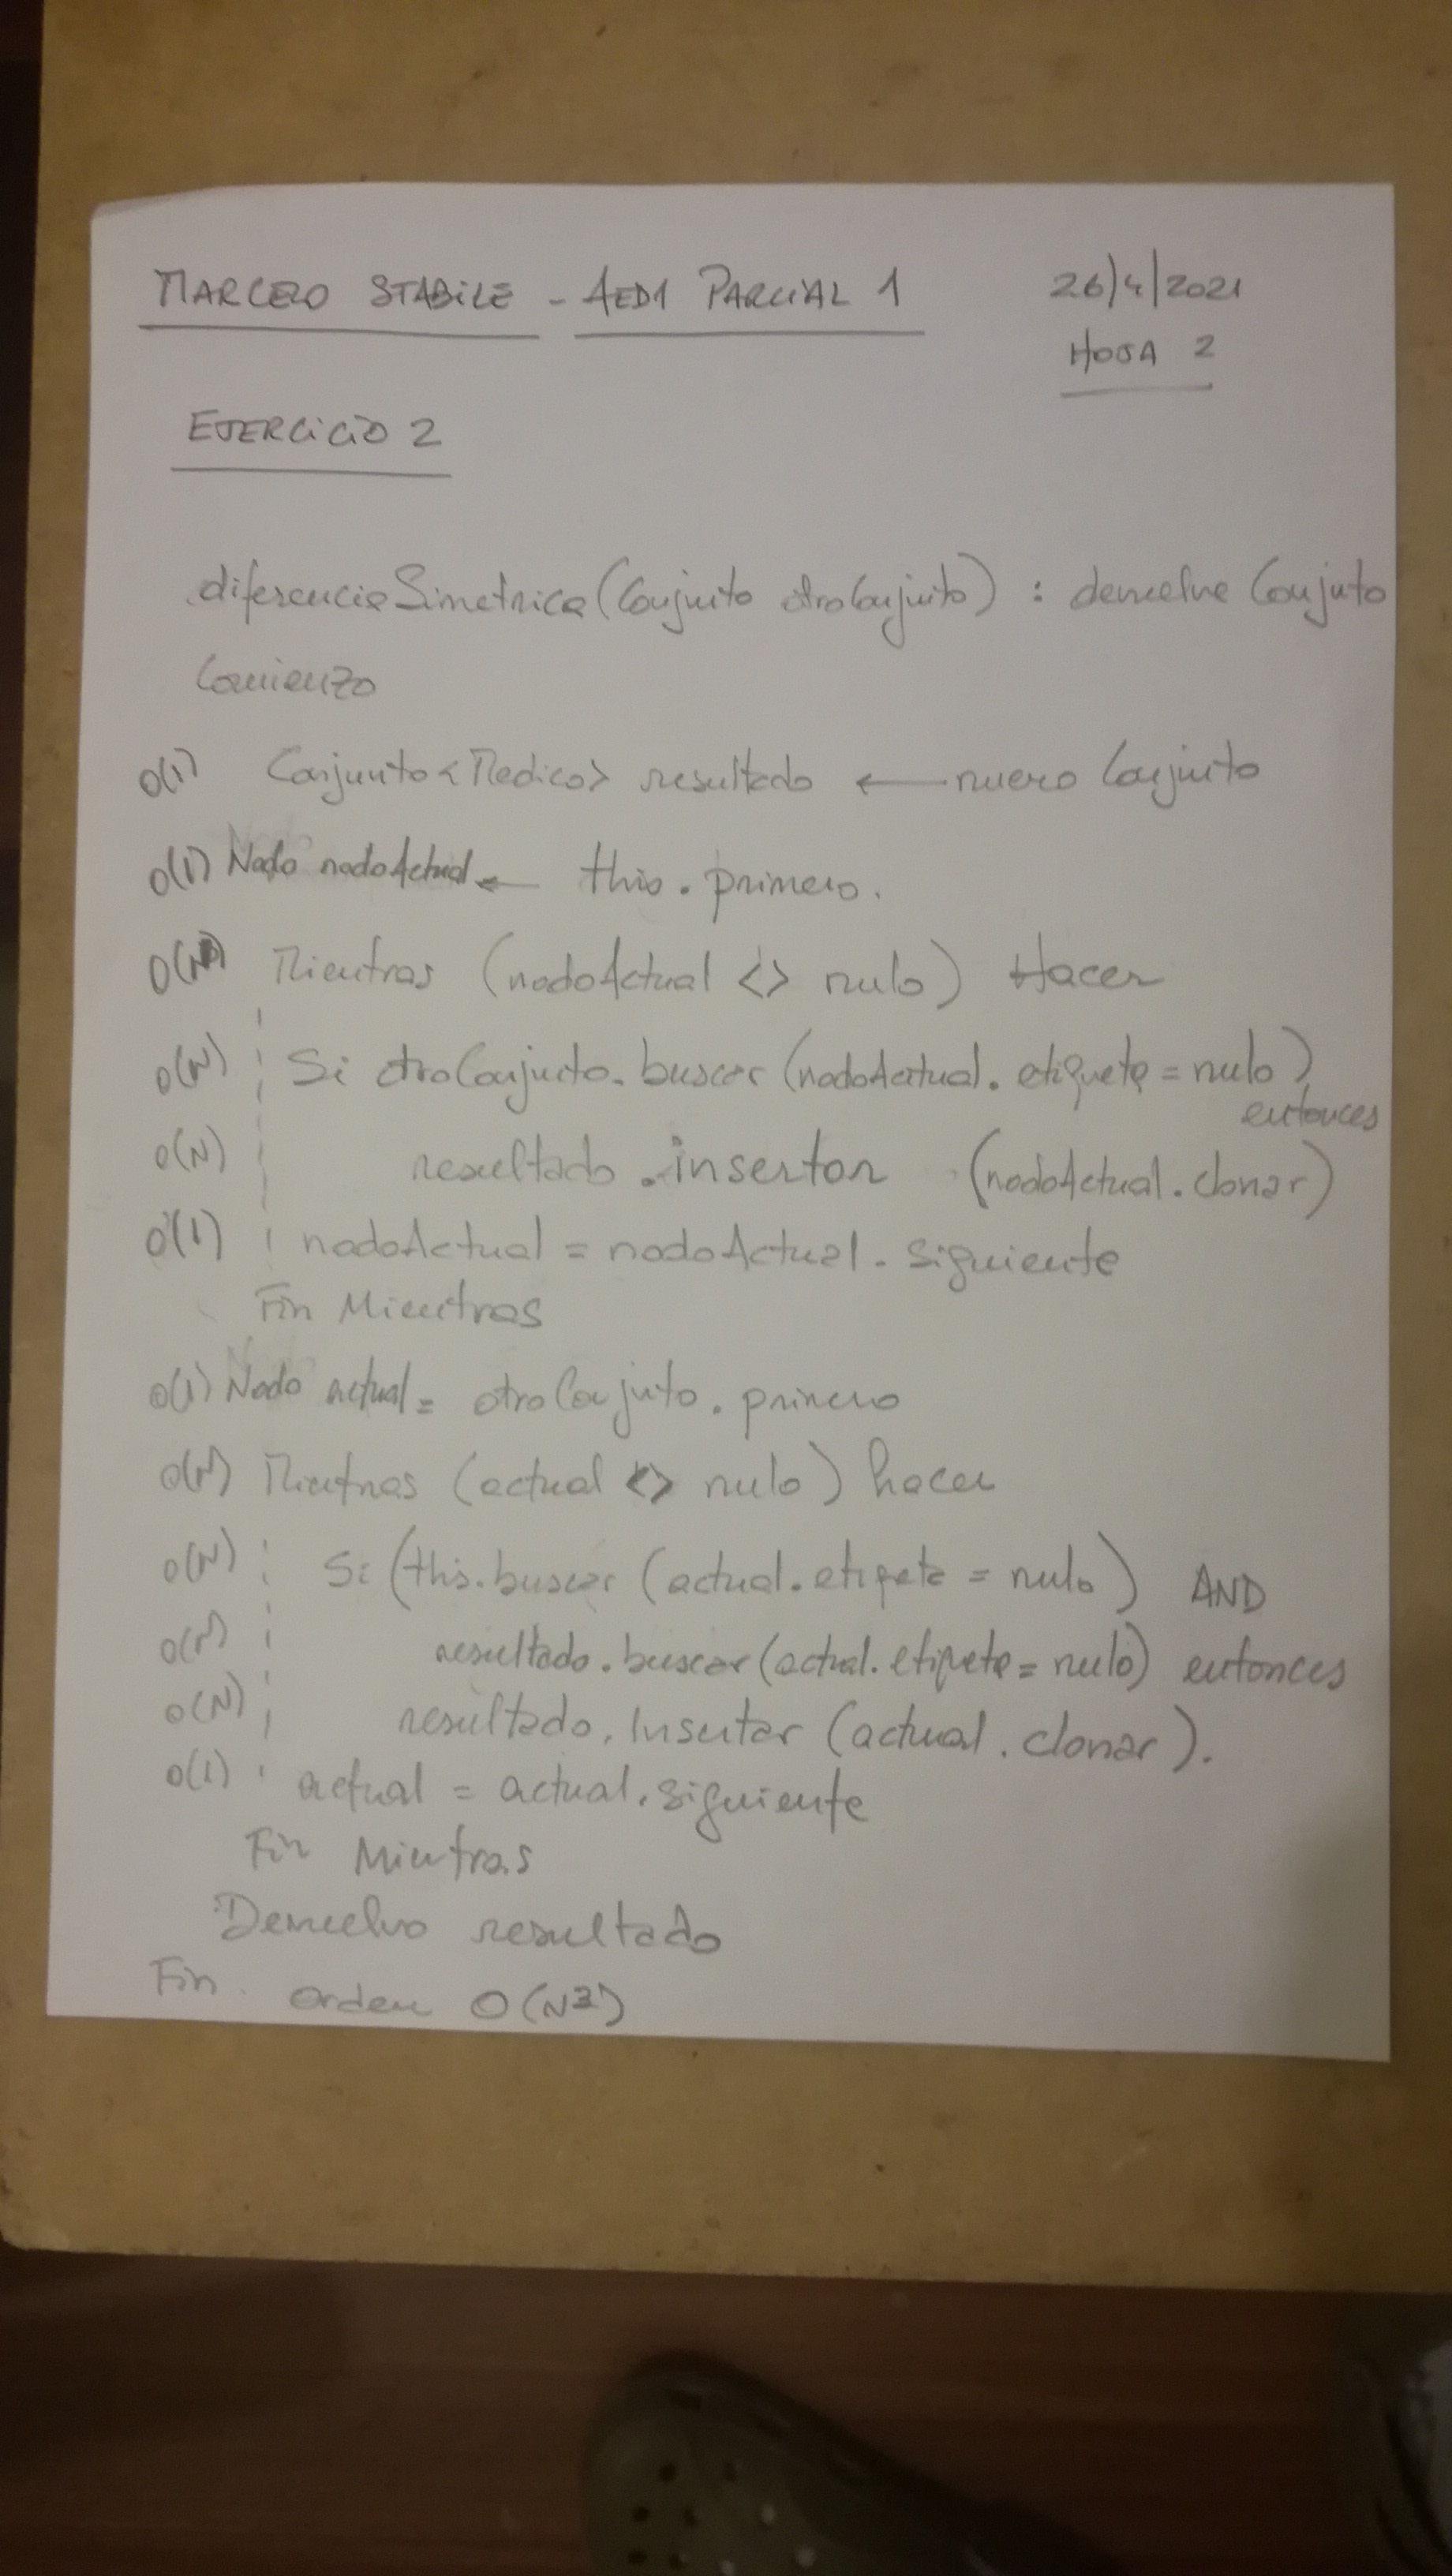 MARCELO STABILE - AED1 PARCIAL 1 26/4/2021
HOJA 2
EJERCICIO 2
diferenciaSimetrica (Conjunto otroConjunto) : devuelve Conjunto
Comienzo
O(1) Conjunto<Medico> resultado ← nuevo Conjunto
O(1) Nodo nodoActual ← this.primero.
O(N) Mientras (nodoActual <> nulo) Hacer
O(N) Si otroConjunto.buscar (nodoActual.etiqueta = nulo)
entonces
O(N) resultado.insertar (nodoActual.clonar)
O(1) nodoActual = nodoActual.siguiente
Fin Mientras
O(1) Nodo actual = otroConjuto.primero
O(N) Mientras (actual <> nulo) hacer
O(N) Si (this.buscar (actual.etiqueta = nulo) AND
O(N) resultado.buscar (actual.etiqueta = nulo) entonces
O(N) resultado.Insertar (actual.clonar).
O(1) actual = actual.siguiente
Fin Mientras
Devuelvo resultado
Fin. orden O(N²)